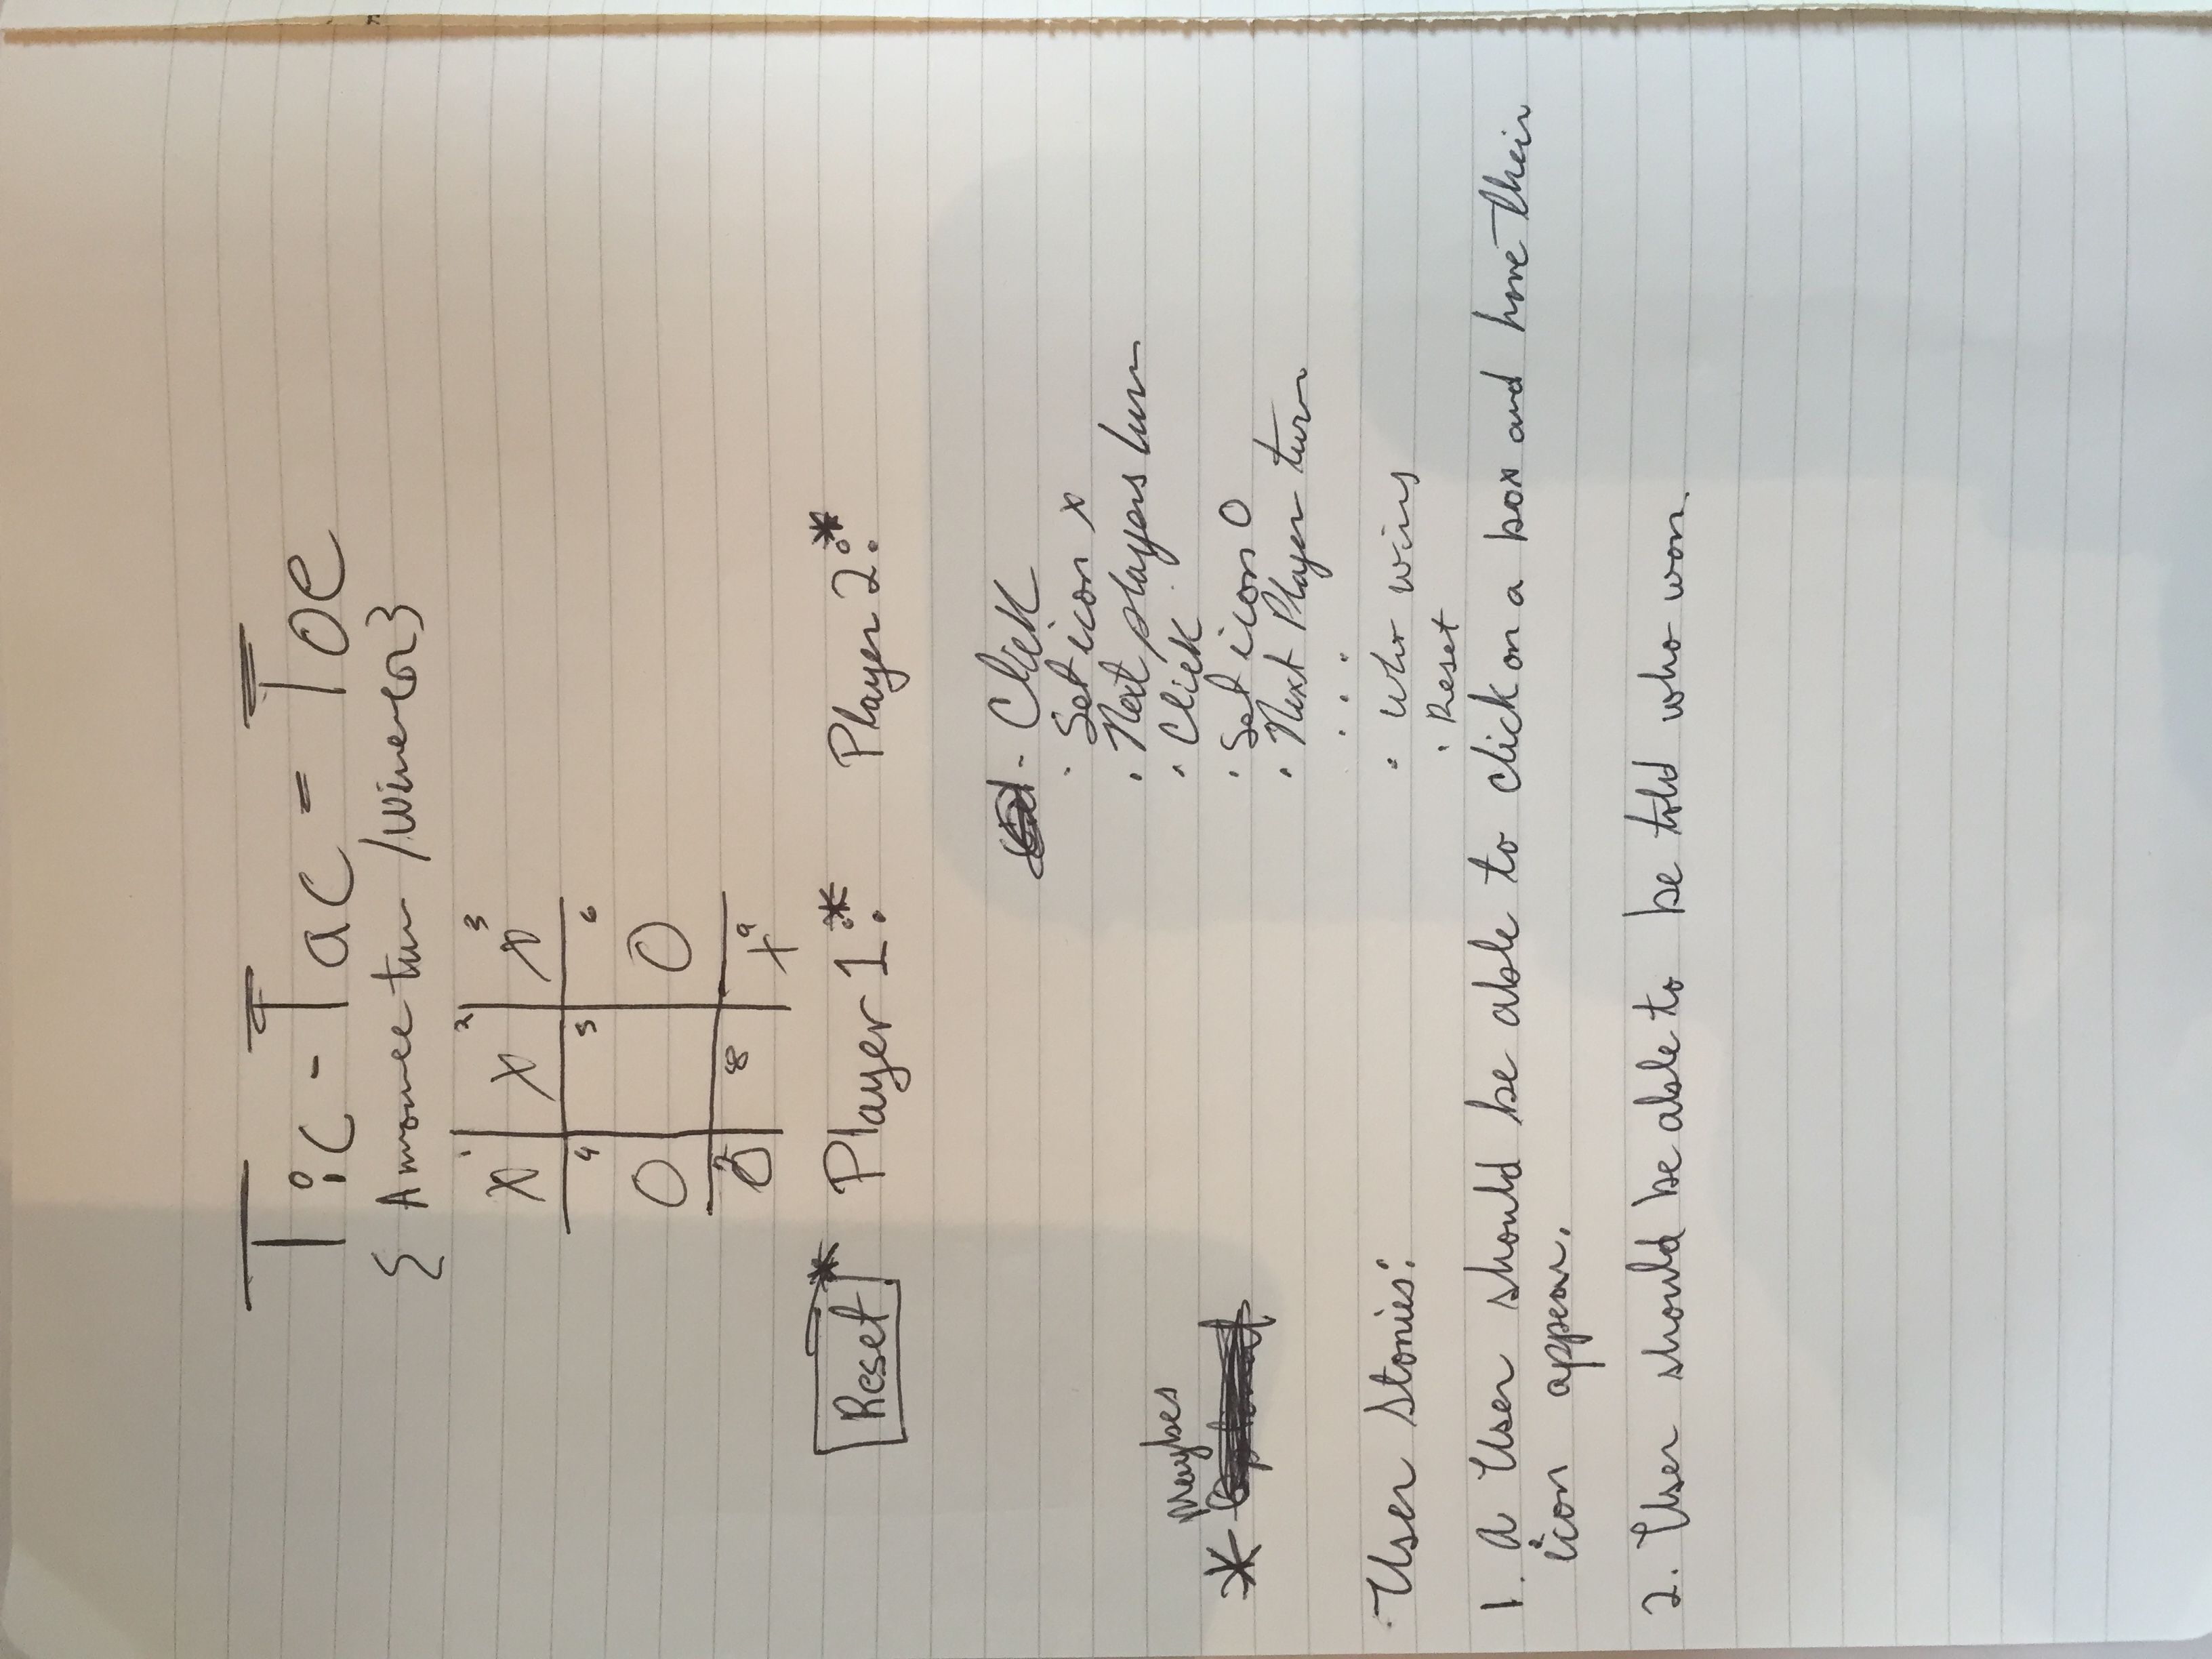 Tic-Tac-Toe
{ Announce turn / Winner }
1 2 3
X X X
4 5 6
O O
7 8 9
O X
Reset * Player 1:* Player 2:*
- Click
· Set icon X
· Next players turn
· Click
· Set icon O
· Next Player turn
...
· Who wins
· Reset
Maybes
* Optional
User Stories:
1. A User should be able to click on a box and have their
icon appear.
2. User should be able to be told who won.